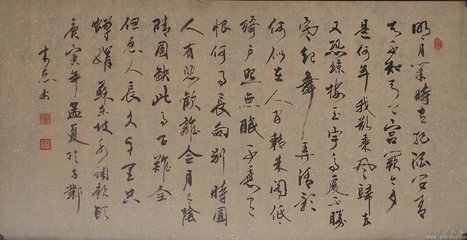 明月幾時有把酒問青
天不知天上宮闕今夕
是何年我欲乘風歸去
又恐瓊樓玉宇高處不勝
寒起舞弄清影
何似在人間轉朱閣低
綺戶照無眠不應有
恨何事長向別時圓
人有悲歡離合月有陰
晴圓缺此事古難全
但願人長久千里共
嬋娟 蘇東坡水調歌頭
庚寅年孟夏於古